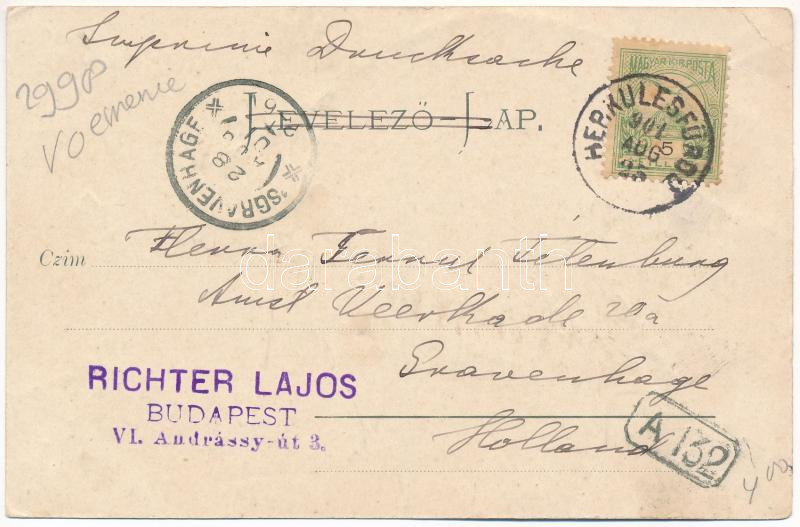 Imprimé Drucksache
2998
LEVELEZŐ-LAP.
'SGRAVENHAGE
28
MAGYAR KIR. POSTA
HERKULESFÜRDŐ
901
AUG
25
5
Czim
Herrn
Amst Veerkade 20a
Gravenhage
Holland
RICHTER LAJOS
BUDAPEST
VI. Andrássy-út 3.
A 132
400
darabanth